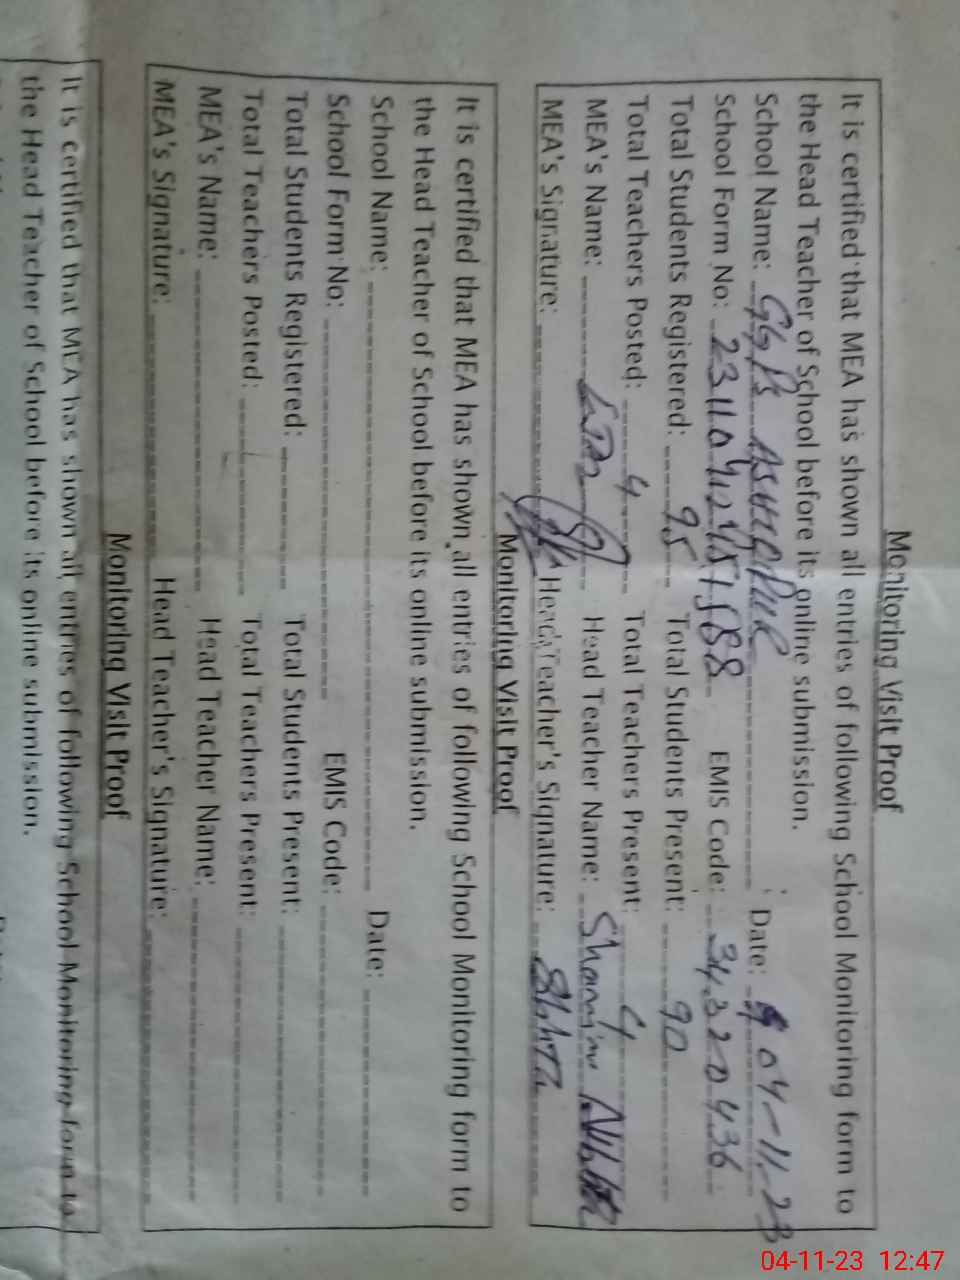 Monitoring Visit Proof
It is certified that MEA has shown all entries of following School Monitoring form to
the Head Teacher of School before its online submission.
School Name: GGPS ASHRAFPUR Date: 04-11-23
School Form No: EMIS Code: 34320436
Total Students Registered: 95 Total Students Present: 90
Total Teachers Posted: 4 Total Teachers Present: 4
MEA's Name: Head Teacher Name: Shamim
MEA's Signature: Head Teacher's Signature:
Monitoring Visit Proof
It is certified that MEA has shown all entries of following School Monitoring form to
the Head Teacher of School before its online submission.
School Name: Date:
School Form No: EMIS Code:
Total Students Registered: Total Students Present:
Total Teachers Posted: Total Teachers Present:
MEA's Name: Head Teacher Name:
MEA's Signature: Head Teacher's Signature:
Monitoring Visit Proof
It is certified that MEA has shown all entries of following School Monitoring form to
the Head Teacher of School before its online submission.
04-11-23 12:47